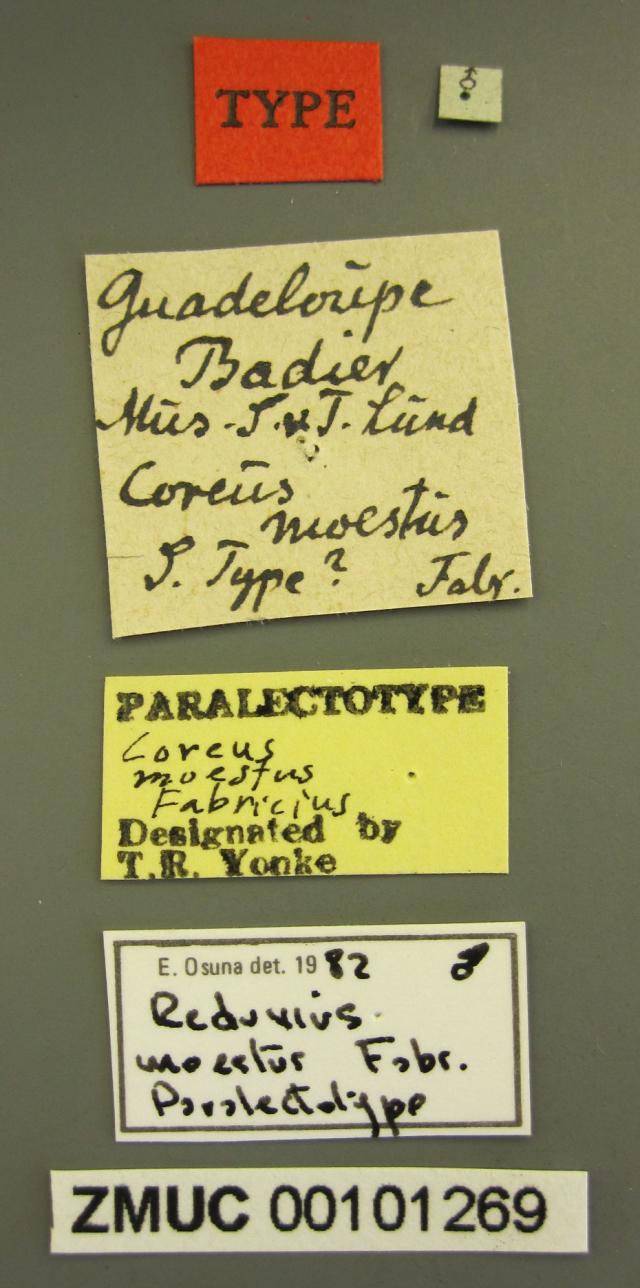 TYPE ♂
Guadeloupe
Badier
Mus. S. & T. Lund
Coreus
moestus
S. Type? Fabr.
PARALECTOTYPE
Coreus
moestus
Fabricius
Designated by
T.R. Yonke
E. Osuna det. 1982 ♂
Reduvius
moestus Fabr.
Paralectotype
ZMUC 00101269